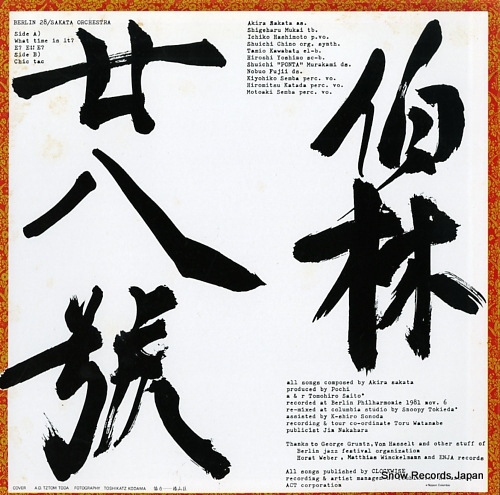 BERLIN 28/SAKATA ORCHESTRA
Side A)
What time is it?
E7 E♯7 E7
Side B)
Chic tac
Akira Sakata as.
Shigeharu Mukai tb.
Ichiko Hashimoto p.vo.
Shuichi Chino org. synth.
Tamio Kawabata el-b.
Hiroshi Yoshino ac-b.
Shuichi "PONTA" Murakami ds.
Nobuo Fujii ds.
Kiyohiko Semba perc. vo.
Hiromitsu Katada perc. vo.
Motoaki Semba perc. vo.
伯林
廿八號
all songs composed by Akira sakata
produced by Pochi
a & r Tomohiro Saito
recorded at Berlin Philharmonie 1981 nov. 6
re-mixed at columbia studio by Snoopy Tokieda
assisted by K-shiro Sonoda
recording & tour co-ordinate Toru Watanabe
publicist Jim Nakahara
Thanks to George Gruntz, Vom Hasselt and other stuff of
Berlin jazz festival organization
Horst Weber, Matthias Winckelmann and ENJA records
All songs published by CLOCKWISE
recording & artist manage
ACT corporation
COVER A.D. TZTOM TODA FOTOGRAPHY TOSHIKATZ KODAMA
Show Records Japan